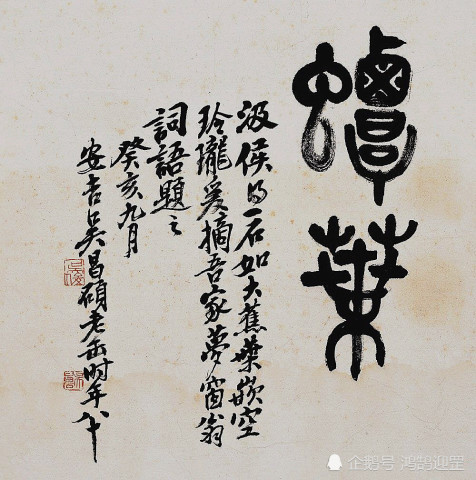 蟫葉
汲侯得一石如大蕉葉嵌空
玲瓏爰摘吾家夢窗翁
詞語題之
癸亥九月
安吉吳昌碩老缶時年八十
企鹅号 鸿鹄迎罡